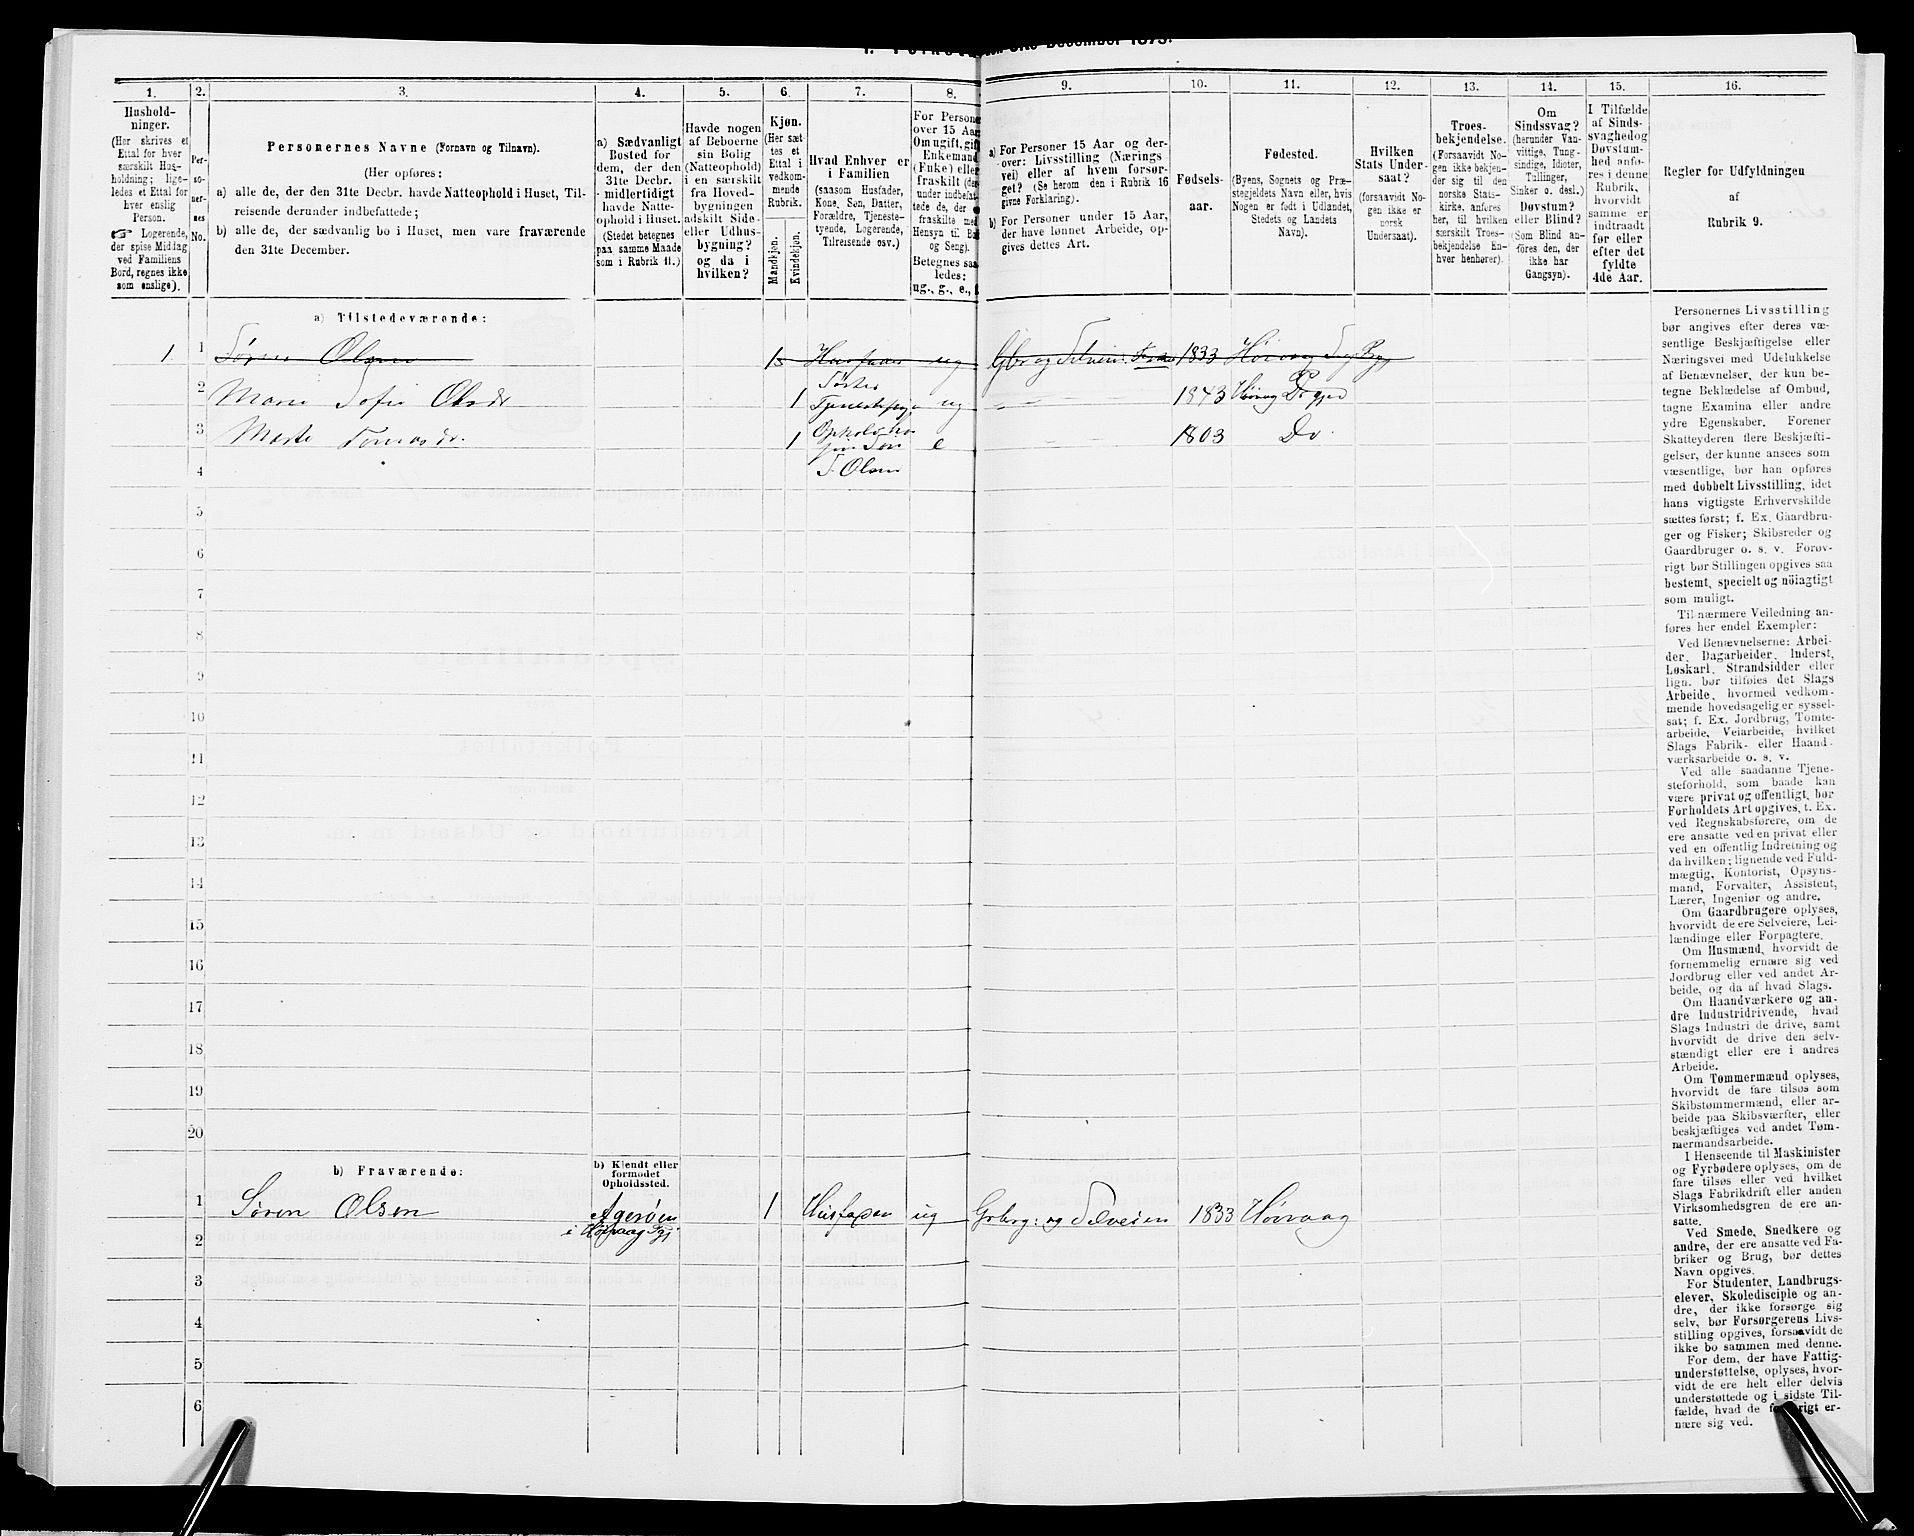 1.
Hushold-
ninger.
(Her skrives et
Ettal for hver
særskilt Hus-
holdning; lige-
ledes et Ettal for
hver enslig
Person.
☞ Logerende,
der spise Middag
ved Familiens
Bord, regnes ikke
som enslige).
2.
Per-
so-
ner-
nes
No.
3.
Personernes Navne (Fornavn og Tilnavn).
(Her opføres:
a) alle de, der den 31te Decbr. havde Natteophold i Huset, Til-
reisende derunder indbefattede;
b) alle de, der sædvanlig bo i Huset, men vare fraværende
den 31te December.
4.
a) Sædvanligt
Bosted for
dem, der den
31te Decbr.
midlertidigt
havde Natte-
ophold i Huset.
(Stedet betegnes
paa samme Maade
som i Rubrik 11.)
5.
Havde nogen
af Beboerne
sin Bolig
(Natteophold)
i en særskilt
fra Hoved-
bygningen
adskilt Side-
eller Udhus-
bygning?
og da i
hvilken?
6.
Kjøn.
(Her sæt-
tes et
Ettal i
vedkom-
mende
Rubrik.
Mandkjøn.
Kvindekjøn.
7.
Hvad Enhver er
i Familien
(saasom Husfader,
Kone, Søn, Datter,
Forældre, Tjeneste-
tyende, Logerende,
Tilreisende osv.)
8.
For Persone
over 15 Aar
Om ugift, gif
Enkemand
(Enke) eller
fraskilt (der-
under indbefat-
tede de, der
fraskilte med
Hensyn til Bo
og Seng).
Betegnes saa-
ledes:
ug., g., e.,
9.
a) For Personer 15 Aar og der-
over: Livsstilling (Nærings
vei) eller af hvem forsør-
get? (Se herom den i Rubrik 16
givne Forklaring).
b) For Personer under 15 Aar,
der have lønnet Arbeide, op-
gives dettes Art.
10.
Fødsels-
aar.
11.
Fødested.
(Byens, Sognets og Præ-
stegjeldets Navn eller, hvis
Nogen er født i Udlandet,
Stedets og Landets
Navn).
12.
Hvilken
Stats Under-
saat?
(forsaavidt No-
gen ikke er
norsk
Undersaat).
13.
Troes-
bekjendelse.
(Forsaavidt No-
gen ikke bekjen-
der sig til den
norske Stats-
kirke, anføres
her, til hvilken
særskilt Troes-
bekjendelse En-
hver henhører).
14.
Om
Sindssvag?
(herunder Van-
vittige, Tung-
sindige, Idioter,
Tullinger,
Sinker o. desl.)
Døvstum?
eller Blind?
(Som Blind an-
føres den, der
ikke har
Gangsyn).
15.
I Tilfælde
af Sinds-
svaghed og
Døvstum-
hed anfø-
res i denne
Rubrik,
hvorvidt
samme er
indtraadt
før eller
efter det
fyldte
4de Aar.
16.
Regler for Udfyldningen
af
Rubrik 9.
a) Tilstedeværende:
1 1 Søren Olsen 1 Husfader ug Gbr og Selveier 1833 Høivaag
2 Maren Sofie Olsdr 1 Søster Tjenestepige ug 1843 Høivaag
3 Marte Tomasdr. 1 e 1803 Do.
4 S. Olsen
5
6
7
8
9
10
11
12
13
14
15
16
17
18
19
20
b) Fraværende:
b) Kjendt eller
formodet
Opholdssted.
1 Søren Olsen Agerøen 1 Husfaxen ug Grbrg: og Selveien 1833 Høivaag
2 i Høivaag Sgj
3
4
5
6
Personernes Livsstilling
bør angives efter deres væ-
sentlige Beskjæftigelse eller
Næringsvei med Udelukkelse
af Benævnelser, der kun be-
tegne Beklædelse af Ombud,
tagne Examina eller andre
ydre Egenskaber. Forener
Skatteyderen flere Beskjæfti-
gelser, der kunne ansees som
væsentlige, bør han opføres
med dobbelt Livsstilling, idet
hans vigtigste Erhvervskilde
sættes først; f. Ex. Gaardbru-
ger og Fisker; Skibsreder og
Gaardbruger o. s. v. Forøv-
rigt bør Stillingen opgives saa
bestemt, specielt og nöiagtigt
som muligt.
Til nærmere Veiledning an-
føres her endel Exempler:
Ved Benævnelserne: Arbei-
der, Dagarbeider, Inderst,
Løskarl, Strandsidder eller
lign. bør tilføies det Slags
Arbeide, hvormed vedkom-
mende hovedsagelig er syssel-
sat; f. Ex. Jordbrug, Tomte-
arbeide, Veiarbeide, hvilket
Slags Fabrik- eller Haand-
værksarbeide o. s. v.
Ved alle saadanne Tjene-
steforhold, som baade kan
være privat og offentligt, bør
Forholdets Art opgives, t. Ex.
ved Regnskabsførere, om de
ere ansatte ved en privat eller
ved en offentlig Indretning og
da hvilken; lignende ved Fuld-
mægtig, Kontorist, Opsyns-
mand, Forvalter, Assistent,
Lærer, Ingeniør og andre.
Om Gaardbrugere oplyses,
hvorvidt de ere Selveiere, Lei-
lændinge eller Forpagtere.
Om Husmænd, hvorvidt de
fornemmelig ernære sig ved
Jordbrug eller ved andet Ar-
beide, og da af hvad Slags.
Om Haandværkere og an-
dre Industridrivende, hvad
Slags Industri de drive, samt
hvorvidt de drive den selv-
stændigt eller ere i andres
Arbeide.
Om Tømmermænd oplyses,
hvorvidt de fare tilsøs som
Skibstømmermænd, eller ar-
beide paa Skibsværfter, eller
beskjæftiges ved andet Tøm-
mermandsarbeide.
I Henseende til Maskinister
og Fyrbødere oplyses, om de
fare tilsøs eller ved hvilket
Slags Fabrikdrift eller anden
Virksomhedsgren de ere an-
satte.
Ved Smede, Snedkere og
andre, der ere ansatte ved Fa-
briker og Brug, bør dettes
Navn opgives.
For Studenter, Landbrugs-
elever, Skoledisciple og an-
dre, der ikke forsørge sig
selv, bør Forsørgerens Livs-
stilling opgives, forsaavidt de
ikke bo sammen med denne.
For dem, der have Fattig-
understøttelse, oplyses, hvor-
vidt de ere helt eller delvis
understøttede og i sidste Til-
fælde, hvad de forøvrigt er-
nære sig ved.